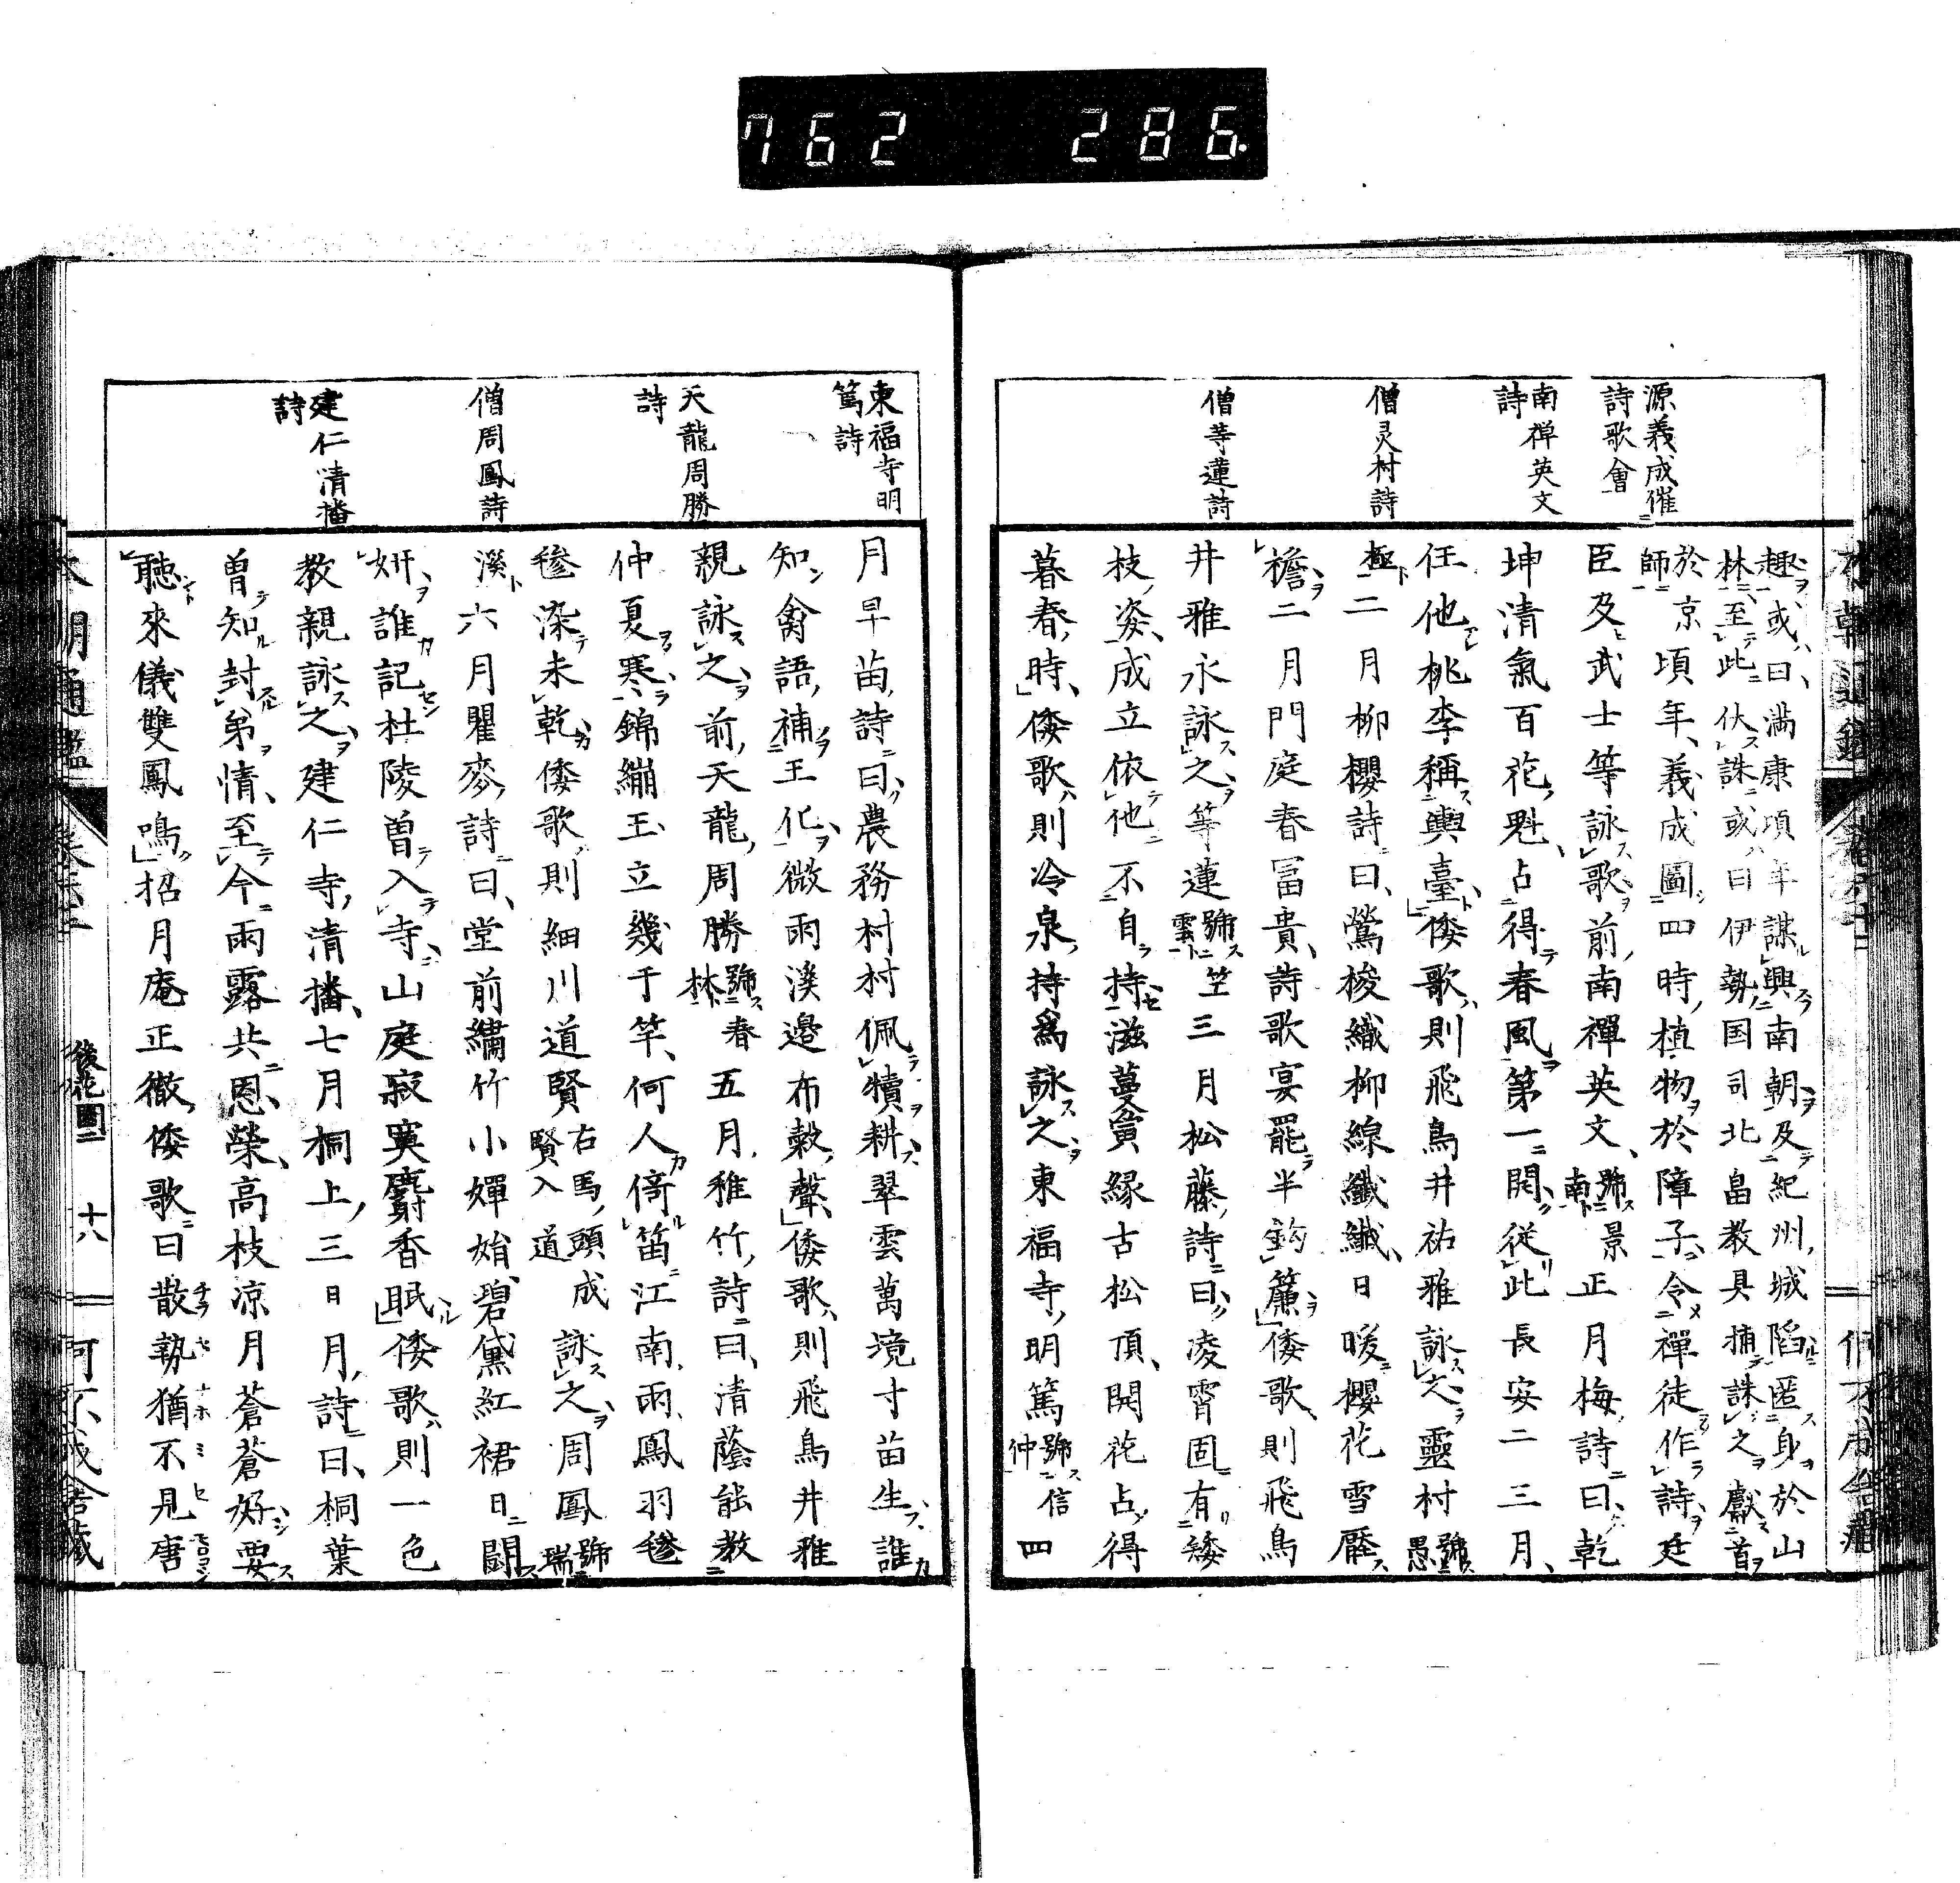 762 286.
源義成催
詩歌會
南禅英文
詩
僧灵村詩
僧等蓮詩
趣或曰満康頃年謀興南朝及紀州城陷匿身於山
林至此伏誅或曰伊勢国司北畠教具捕誅之獻首
於京師頃年義成圖四時植物於障子令禪徒作詩廷
臣及武士等詠歌前南禪英文號景南正月梅詩曰乾
坤清氣百花魁占得春風第一開從此長安二三月
任他桃李稱輿臺倭歌則飛鳥井祐雅詠之靈村號愚
極二月柳櫻詩曰鶯梭織柳線纖纖日暖櫻花雪壓
檐二月門庭春冨貴詩歌宴罷半鈎簾倭歌則飛鳥
井雅永詠之等蓮號竺雲三月松藤詩曰凌霄固有矮
枝姿成立依他不自持滋蔓夤緣古松頂開花占得
暮春時倭歌則冷泉持爲詠之東福寺明篤號信仲四
東福寺明
篤詩
天龍周勝
詩
僧周鳳詩
建仁清播
詩
月早苗詩曰農務村村佩犢耕翠雲萬境寸苗生誰
知禽語補王化微雨溪邊布榖聲倭歌則飛鳥井雅
親詠之前天龍周勝號春林五月稚竹詩曰清蔭能教
仲夏寒錦繃玉立幾千竿何人倚笛江南雨鳳羽毿
毿染未乾倭歌則細川道賢右馬頭成賢入道詠之周鳳號瑞
溪六月瞿麥詩曰堂前繡竹小嬋娟碧黛紅裙日鬪
妍誰記杜陵曽入寺山庭寂寞麝香眠倭歌則一色
教親詠之建仁寺清播七月桐上三日月詩曰桐葉
曽知封弟情至今雨露共恩榮高枝凉月蒼蒼好要
聽來儀雙鳳鳴招月庵正徹倭歌曰散㔟猶不見唐
本朝通鑑
後花園二 十八